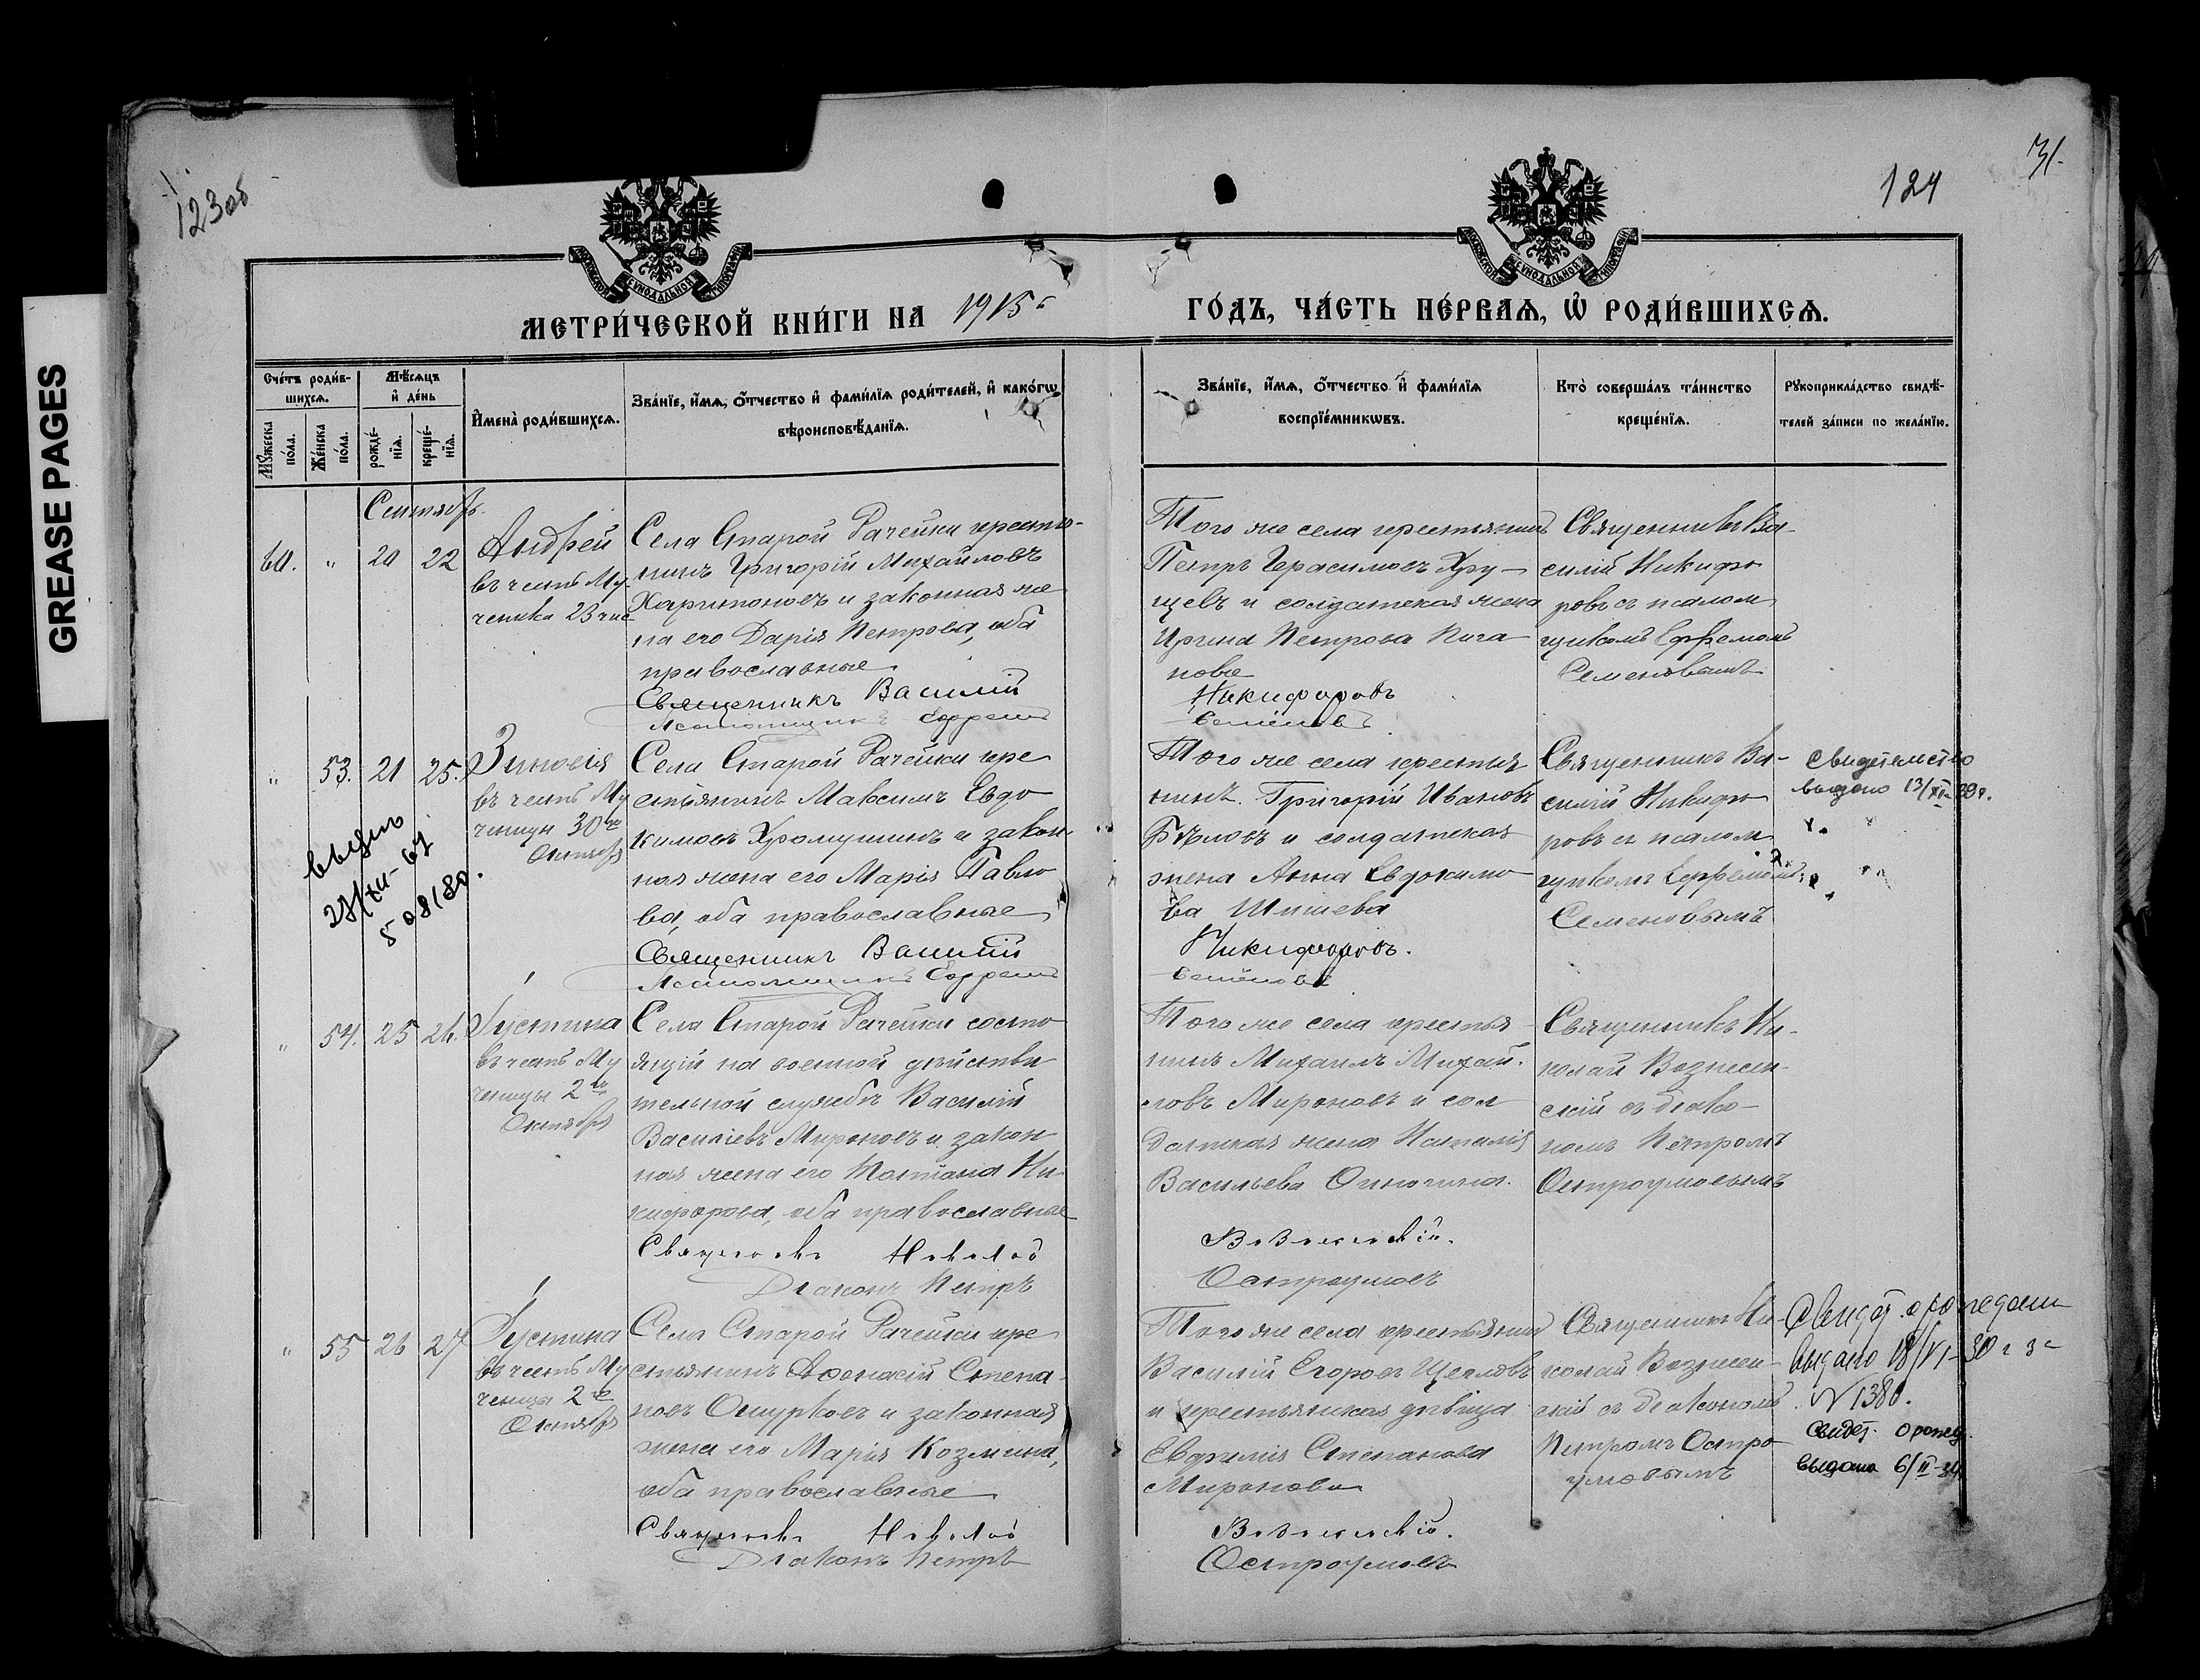 GREASE PAGES
123об
124
31.
МЕТРИ́ЧЕСКОЙ КНИ́ГИ НА 1915 г
ГО́ДЪ, ЧА́СТЬ ПЕ́РВАѦ, Ѽ РОДИ́ВШИХСѦ.
Сче́тъ роди́в-
шихсѧ.
Мѣ́сѧцъ
и҆ де́нь
Мꙋ́жеска
по́ла.
Же́нска
по́ла.
рожде́-
нїѧ.
креще́-
нїѧ.
И҆мена̀ роди́вшихсѧ.
Зва́нїе, и҆́мѧ, ѻ҆́тчество и҆ фами́лїѧ роди́телей, и҆ како́гѡ
вѣроисповѣ́данїѧ.
Зва́нїе, и҆́мѧ, ѻ҆́тчество и҆ фами́лїѧ
воспрїе́мникѡвъ.
Кто̀ соверша́лъ та́инство
креще́нїѧ.
Рꙋкоприкла́дство свидѣ́-
телей за́писи по жела́нїю.
Сентябрь
60. " 20 22
Андрей
въ честь Му-
ченика 23 чис
Села Старой Рачейки крестья-
нинъ Григорій Михайловъ
Харитоновъ и законная же
на его Дарія Петрова, оба
православные
Священникъ Василій
Псаломщикъ Ефремъ
Того же села крестьянинъ
Петръ Герасимовъ Хру-
щевъ и солдатская жена
Ирина Петрова Пига
нова
Никифоровъ
Семёновъ
Священникъ Ва-
силій Никифо
ровъ съ псалом
щикомъ Ефремомъ
Семеновымъ
" 53. 21 25.
Зиновія
въ честь Му
ченицы 30го
Октября
Села Старой Рачейки кре
стьянинъ Максимъ Евдо
кимовъ Хромушинъ и закон-
ная жена его Марія Павло
ва, оба православные
Священникъ Василій
Псаломщикъ Ефремъ
Того же села крестья
нинъ Григорій Ивановъ
Бѣловъ и солдатская
жена Анна Евдокимо
ва Шишева
Никифоровъ.
Семёновъ
Священникъ Ва-
силій Никифо
ровъ съ псалом
щикомъ Ефремомъ
Семеновымъ
Свидетельство
выдано 13/XI-29 г.
508180.
" 54. 25 26.
Іустина
въ честь Му
ченицы 2го
Октября
Села Старой Рачейки состо
ящій на военной дѣйстви
тельной службѣ Василій
Василіевъ Мироновъ и закон
ная жена его Татіана Ни
кифорова, оба православные
Священникъ Николай
Діаконъ Петръ
Того же села крестья
нинъ Михаилъ Михай-
ловъ Мироновъ и сол
датская жена Наталія
Васильева Синюгина.
Вознесенскій.
Остроумовъ
Священникъ Ни-
колай Вознесен-
скій съ діако-
номъ Петромъ
Остроумовымъ
" 55 26 27
Іустина
въ честь Му
ченицы 2го
Октября
Села Старой Рачейки кре
стьянинъ Аѳанасій Степа-
новъ Ошурковъ и законная
жена его Марія Козмина,
оба православные
Священникъ Николай
Діаконъ Петръ
Того же села крестьянинъ
Василій Егоровъ Щегловъ
и крестьянская дѣвица
Евфимія Степанова
Миронова
Вознесенскій.
Остроумовъ
Священникъ Ни-
колай Вознесен-
скій съ діакономъ
Петромъ Остро
умовымъ
Свидет. о рождении
выдано 18/VI-30 г за
№ 1380.
Свидет. о рожд.
выдано 6/II-34